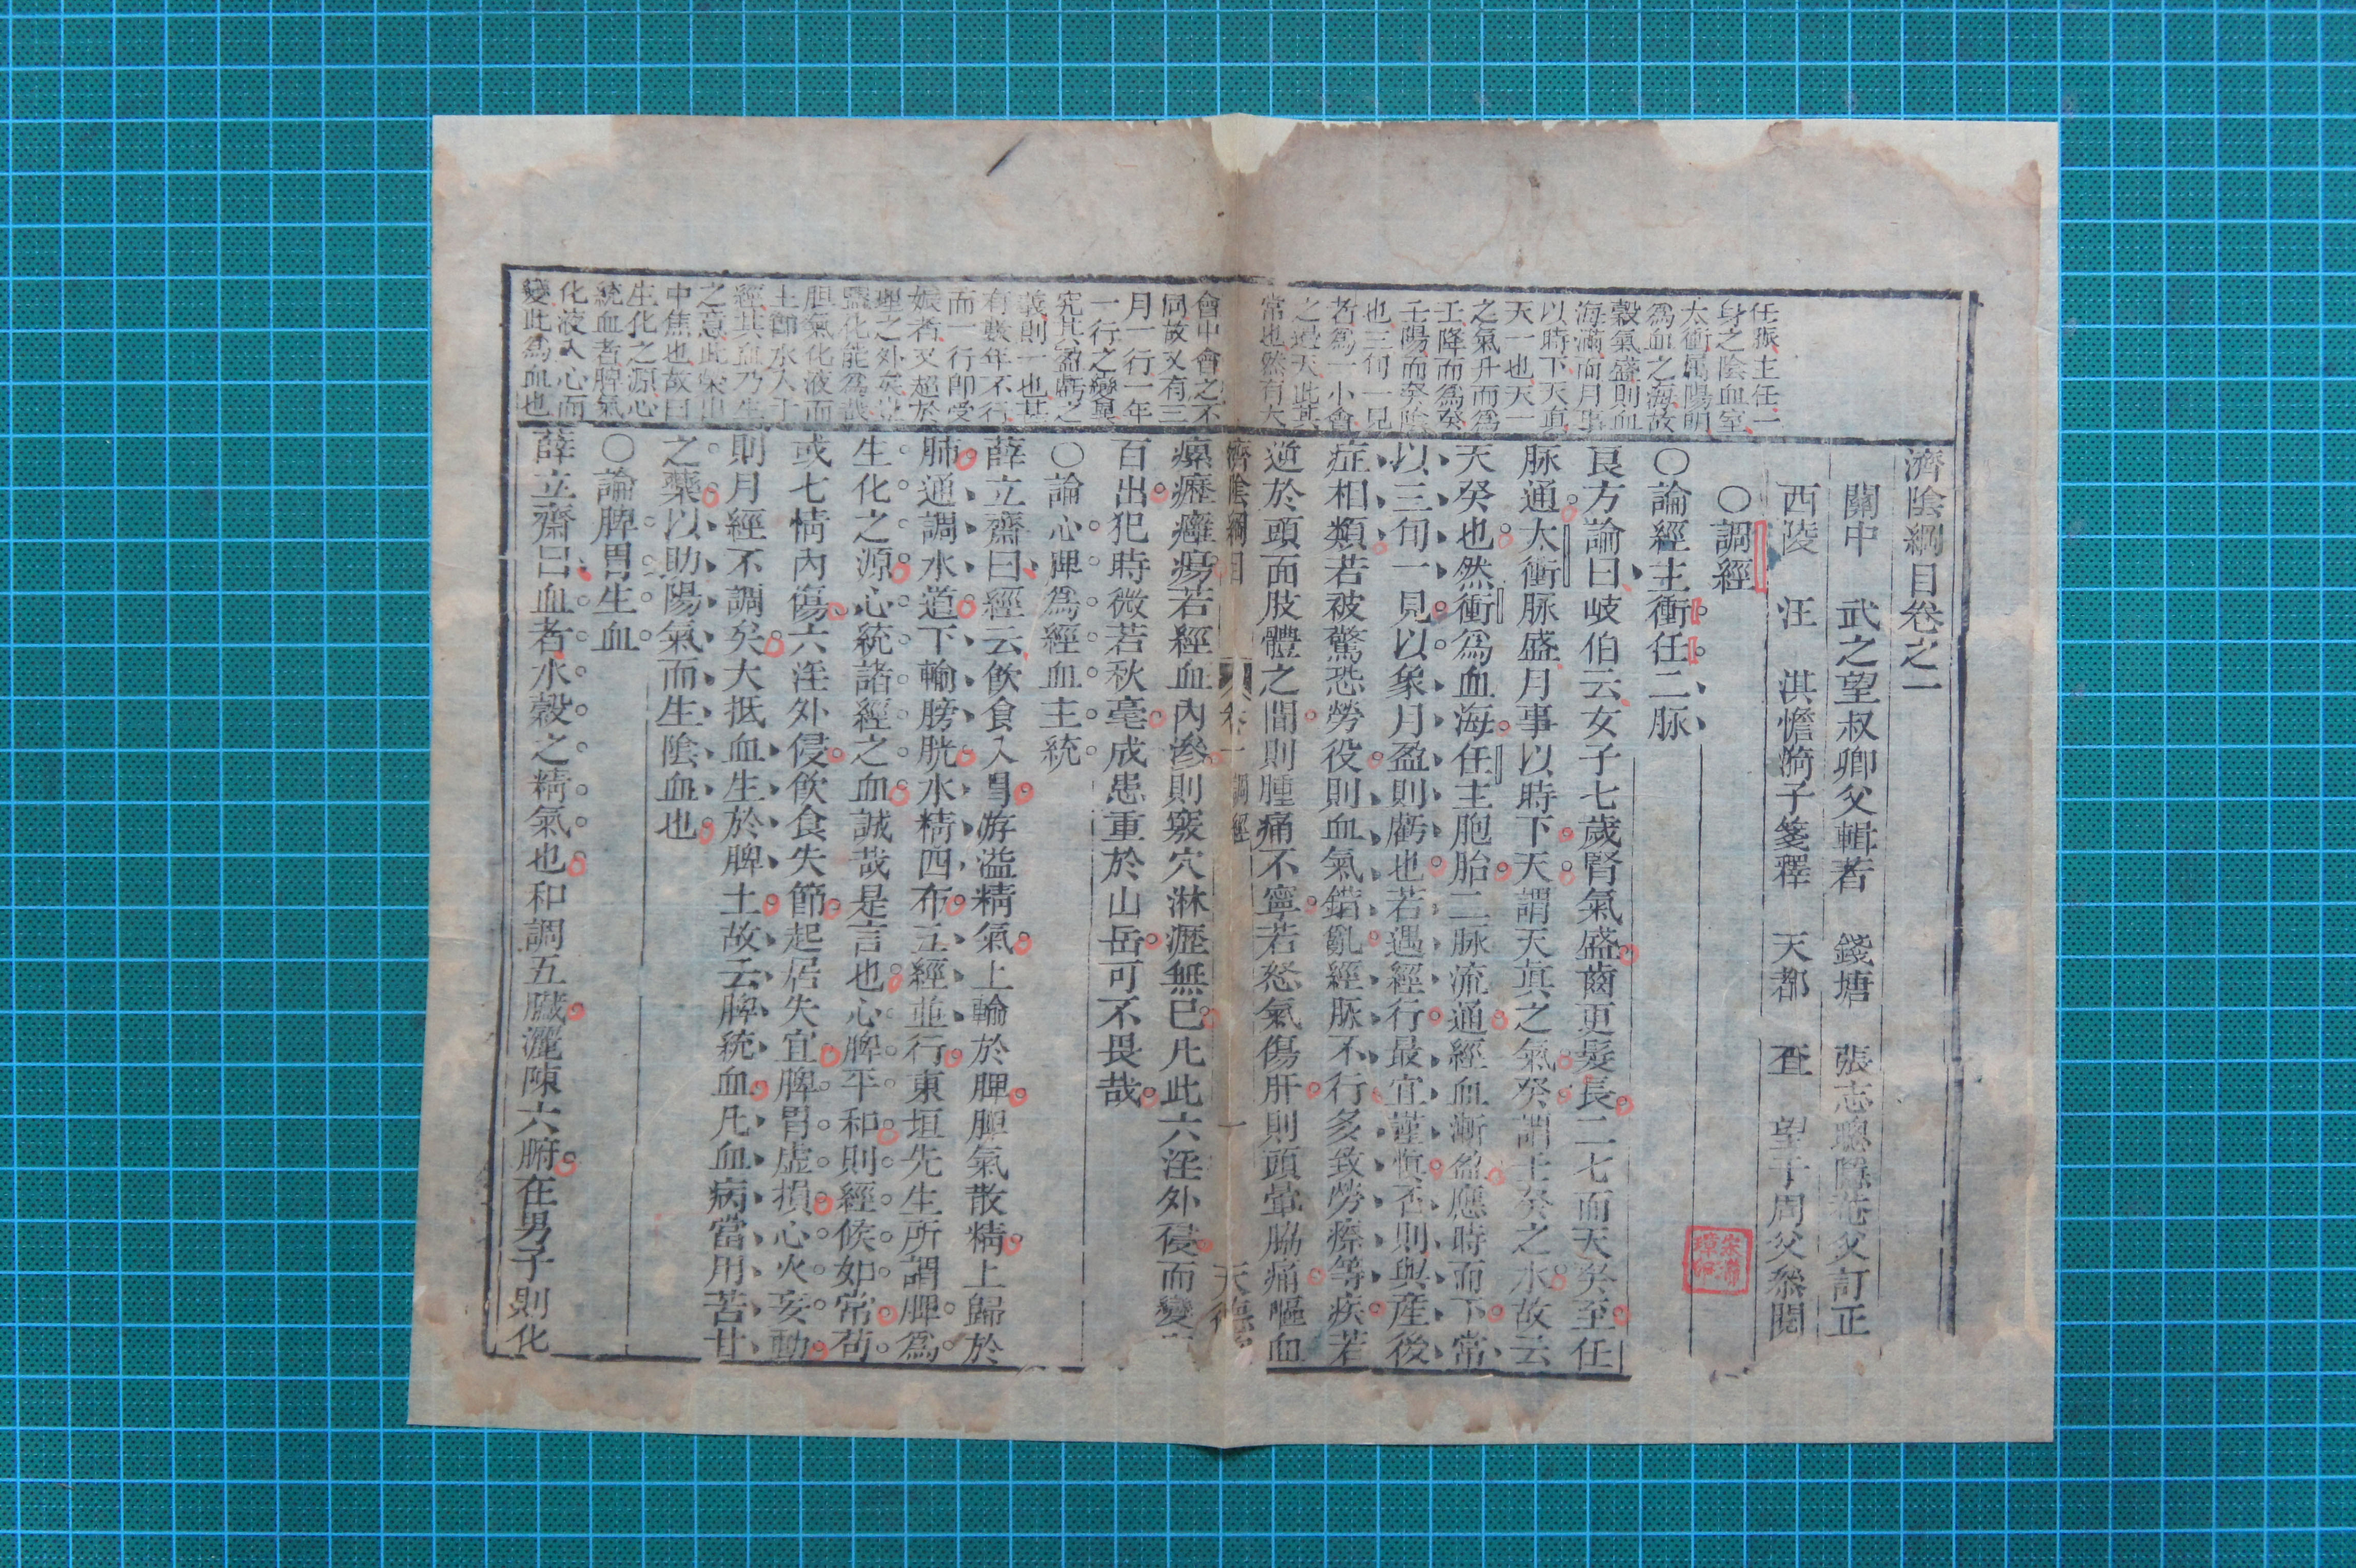 濟陰綱目卷之一
關中　武之望叔卿父輯著　錢塘　張志聰隱菴父訂正
西陵　汪　淇憺漪子箋釋　天都　查　望于周父叅閱
○調經
○論經主衝任二脉
良方論曰岐伯云女子七歲腎氣盛齒更髮長二七而天癸至任
脉通太衝脉盛月事以時下天謂天眞之氣癸謂壬癸之水故云
天癸也然衝爲血海任主胞胎二脉流通經血漸盈應時而下常
以三旬一見以象月盈則虧也若遇經行最宜謹愼否則與產後
症相類若被驚恐勞役則血氣錯亂經脉不行多致勞瘵等疾若
逆於頭面肢體之間則腫痛不寧若怒氣傷肝則頭暈脇痛嘔血
瘰癧癰瘍若經血內滲則竅穴淋瀝無已凡此六淫外侵而變
百出犯時微若秋毫成患重於山岳可不畏哉
○論心脾爲經血主統
薛立齋曰經云飲食入胃游溢精氣上輸於脾脾氣散精上歸於
肺通調水道下輸膀胱水精四布五經並行東垣先生所謂脾爲
生化之源心統諸經之血誠哉是言也心脾平和則經候如常苟
或七情內傷六淫外侵飲食失節起居失宜脾胃虛損心火妄動
則月經不調矣大抵血生於脾土故云脾統血凡血病當用苦甘
之藥以助陽氣而生陰血也
○論脾胃生血
薛立齋曰血者水榖之精氣也和調五臟灑陳六腑在男子則化
任脉主任一
身之陰血室
太衝屬陽明
爲血之海故
穀氣盛則血
海滿而月事
以時下天眞
天一也天一
之氣升而爲
壬降而爲癸
壬陽而癸陰
也三旬一見
者爲一小會
之過天此其
常也然有大
會中會之不
同故又有三
月一行一年
一行之變與
究其盈虧之
義則一也甚
有數年不行
而一行卽受
娠者又超於
理之外矣
化能爲
胆氣化液而
土卽水入于
經其血乃生
之意此榮出
中焦也故曰
生化之源心
統血者脾氣
化液入心而
變此爲血也
濟陰綱目
卷一　調經
一
天德